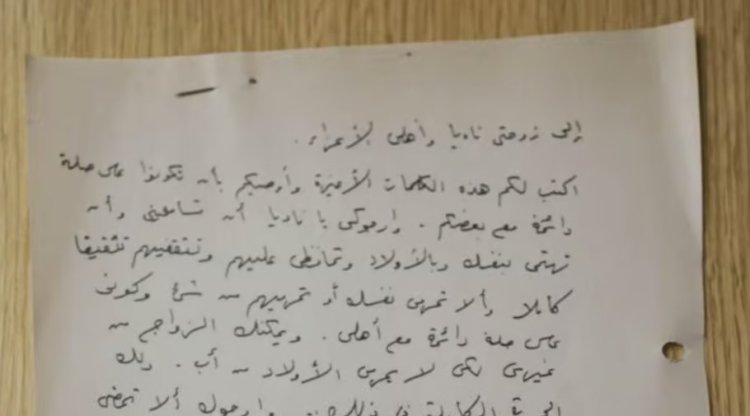 إلى زوجتى ناديا وأهلى الأعزاء.
اكتب لكم هذه الكلمات الأخيرة وأرجوكم بأن تكونوا على صلة
دائمة مع بعضكم. وارجوكى يا ناديا أن تسامحينى وأن
تهتمى بنفسك وبالأولاد وتحافظى عليهم وتثقفيهم تثقيفا
كاملا وألا تحرمى نفسك أو تحرميهم من شئ وكونى
على صلة دائمة مع أهلى. ويمكنك الزواج من
غيرى لكى لا يحرم الأولاد من أب. ولك
الحرية الكاملة فى ذلك. وارجوك ألا تمضى